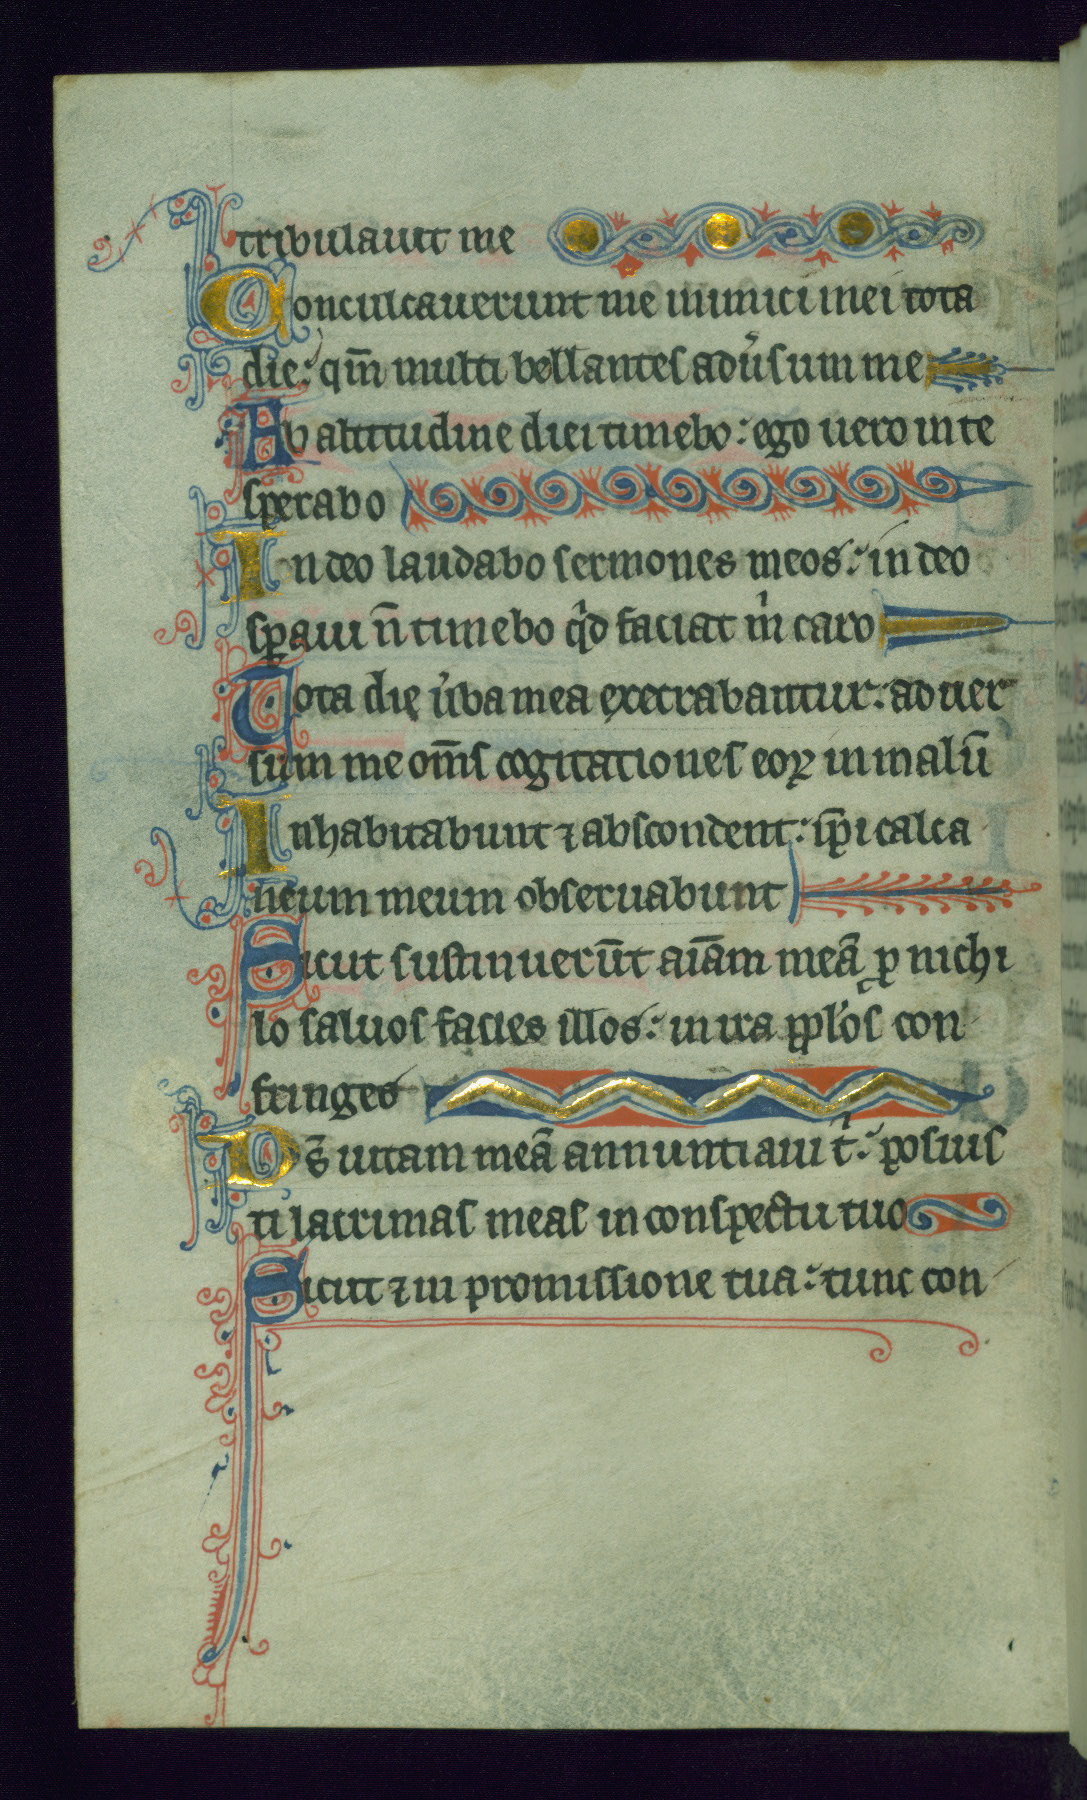 tribulauit me
Conculcauerunt me inimici mei tota
die: qm̄ multi bellantes adu̓sum me
Ab altitudine diei timebo: ego uero in te
sperabo
In deo laudabo sermones meos: in deo
sꝑaui n̄ timebo qͥd faciat mͥ caro
Tota die u̓ba mea execrabantur: aduer
sum me om̄s cogitationes eoꝝ in malū
Inhabitabunt ⁊ abscondent: ip̄i calca
neum meum obseruabunt
Sicut sustinuerūt aīam meā ꝓ nichi
lo saluos facies illos: in ira pplo̓s con
fringes
Ds̄ uitam meā annuntiaui tͥ: posuis
ti lacrimas meas in conspectu tuo
Sicut ⁊ in promissione tua: tunc con